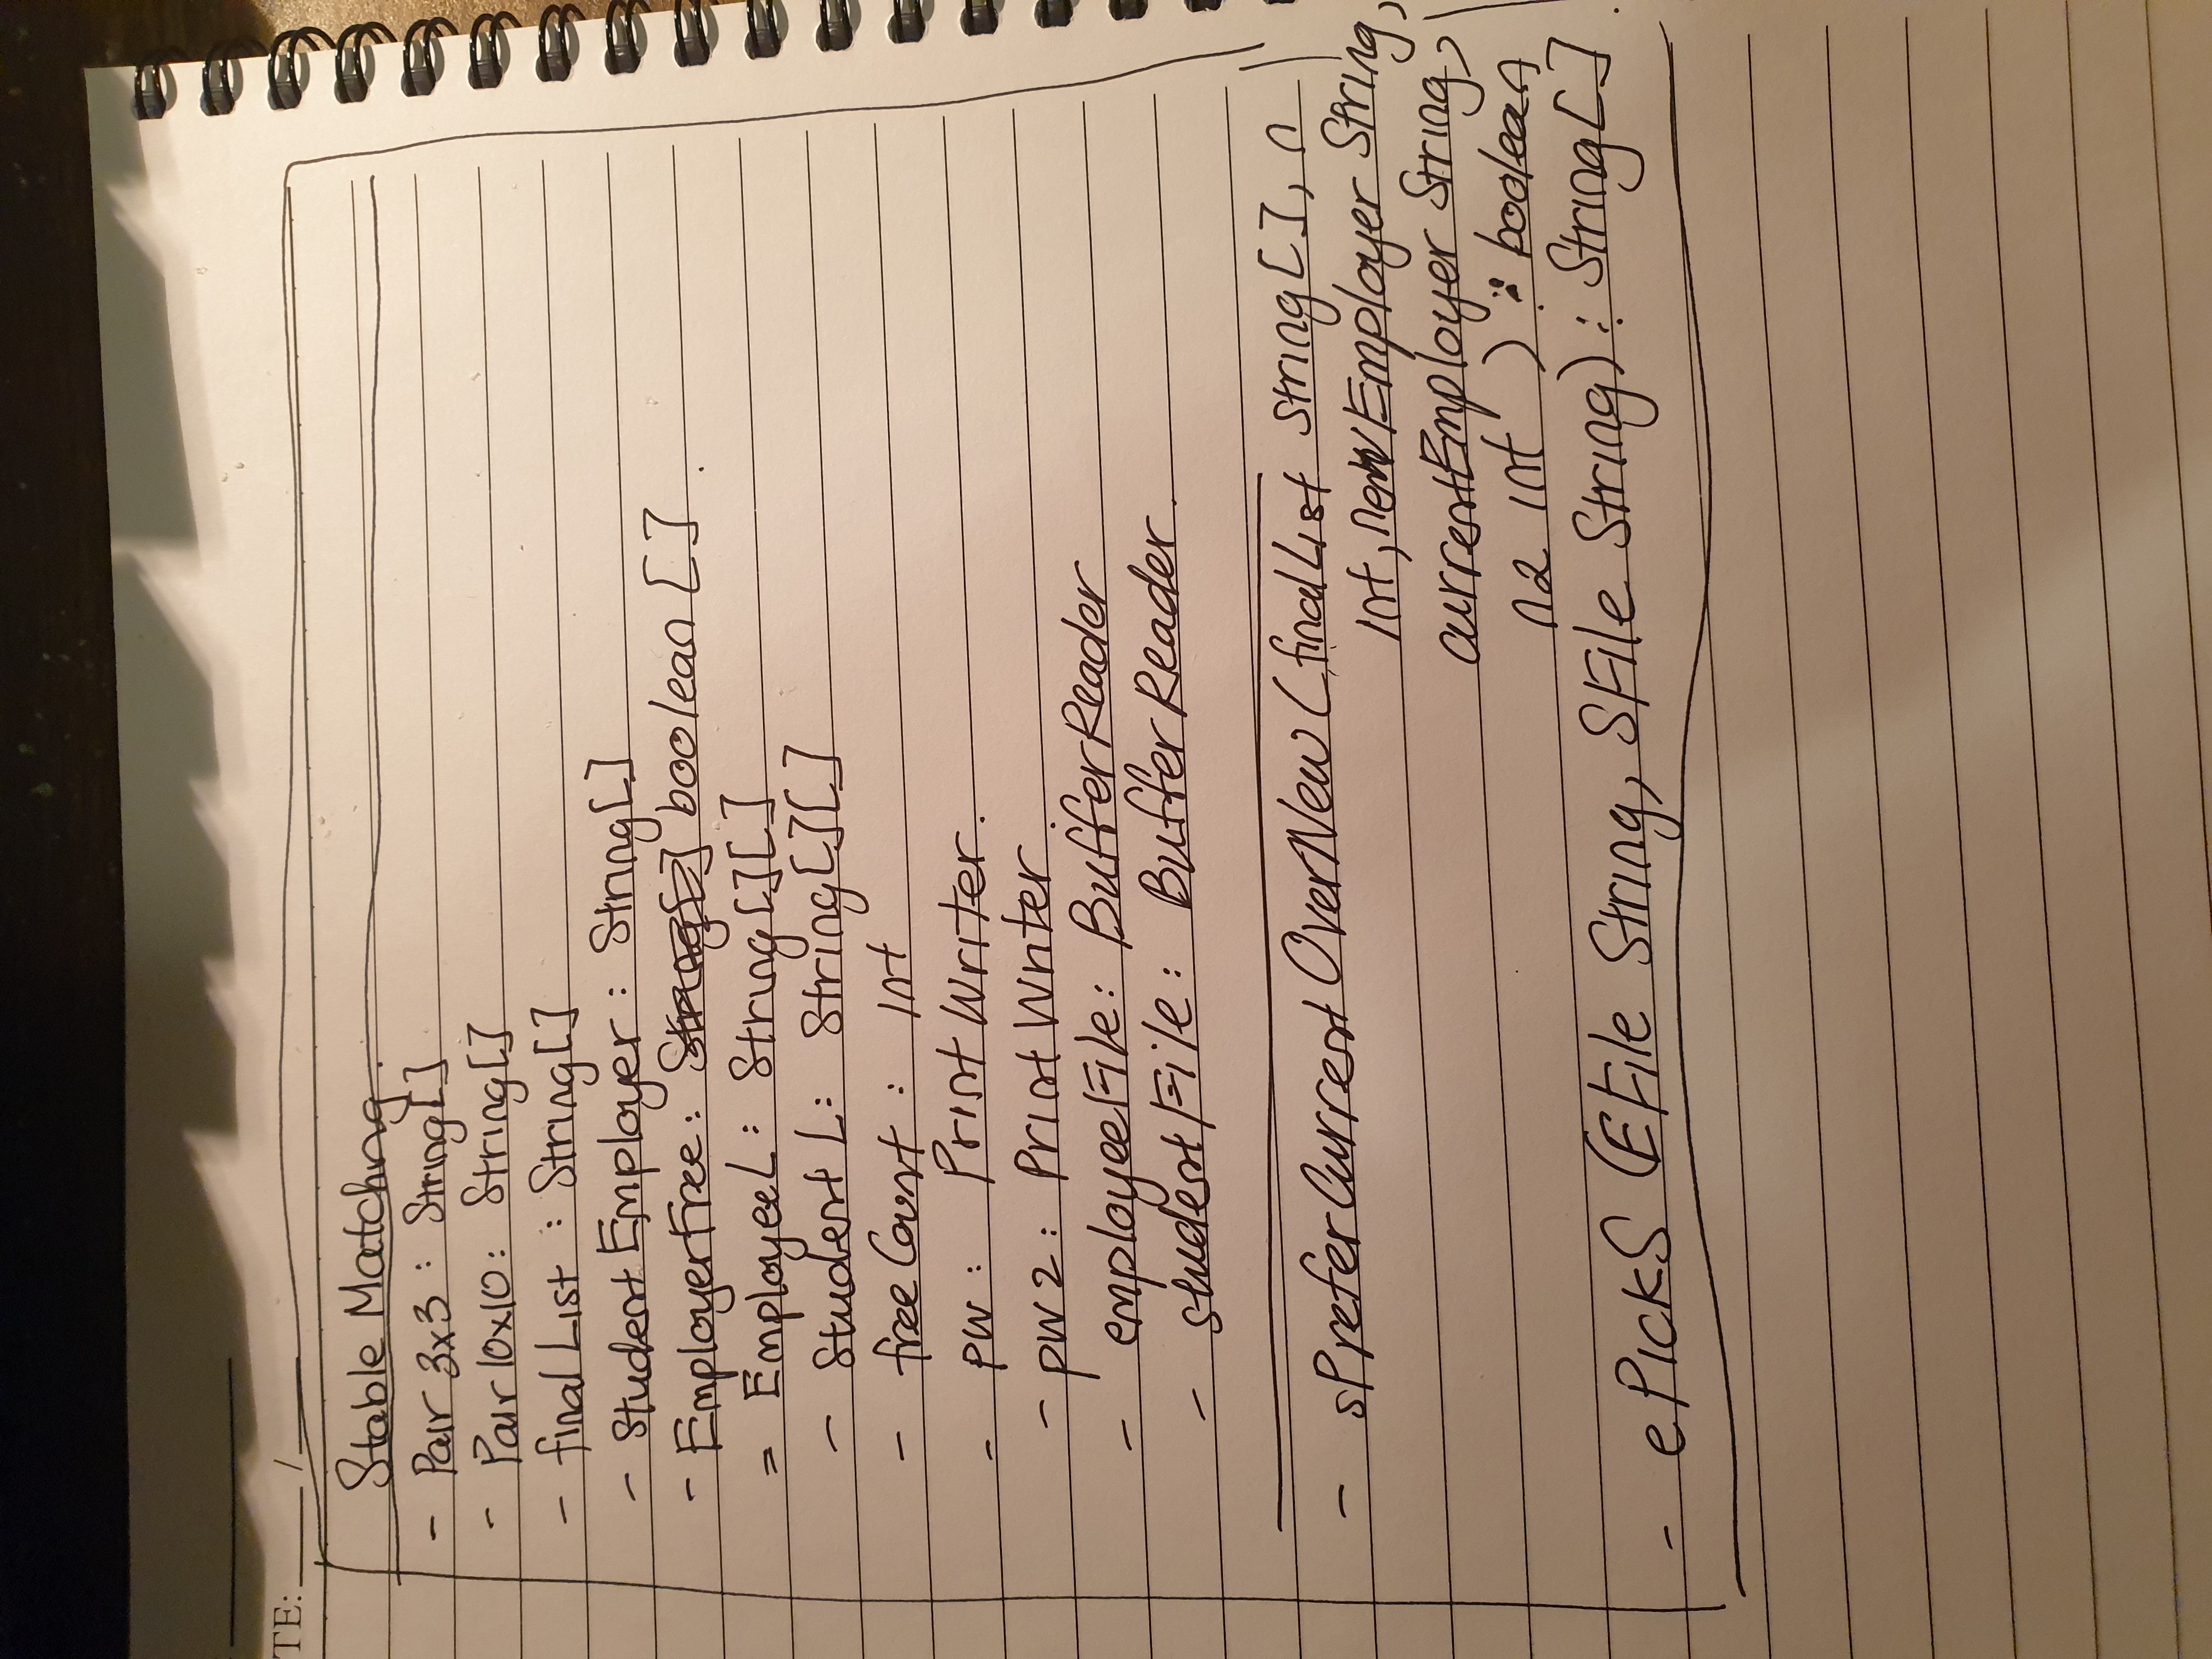 TE: /
Stable Matchng.
- Pair 3x3 : String[]
- Pair 10x10: String[]
- final List : String[]
- Student Employer: String[]
- EmployerFree: String[] boolean [].
= EmployeeL: String[][]
- Student L: String[][]
- free Count : int
- pw : Print Writer.
- pw 2: Print Writer.
- employeeFile: BufferReader
- studentFile: Buffer Reader.
- sPreferCurrentOverNew (final List String[], n
int, newEmployer String,
currentEmployer String,
n2 int ) : boolean
- ePickS (EFile String, SFile String): String[]